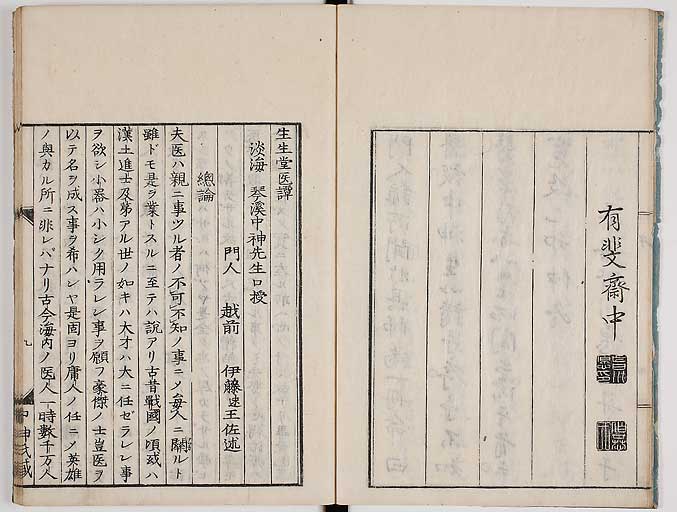 有斐齋中
生生堂医譚
淡海 琴溪中神先生口授
門人 越前 伊藤 王佐述
總論
夫医ハ親ニ事ツル者ノ不可不知ノ事ニメ毎人ニ關ルト
雖ドモ是ヲ業トスルニ至テハ説アリ古昔戰國ノ頃或ハ
漢土進士及第アル世ノ如キハ大才ハ大ニ任ゼラレン事
ヲ欲シ小器ハ小シク用ラレン事ヲ願フ豪傑ノ士豈医ヲ
以テ名ヲ成ス事ヲ希ハンヤ是固ヨリ庸人ノ任ニメ英雄
ノ與カル所ニ非レバナリ古今海内ノ医人一時數千万人
九
中神氏藏